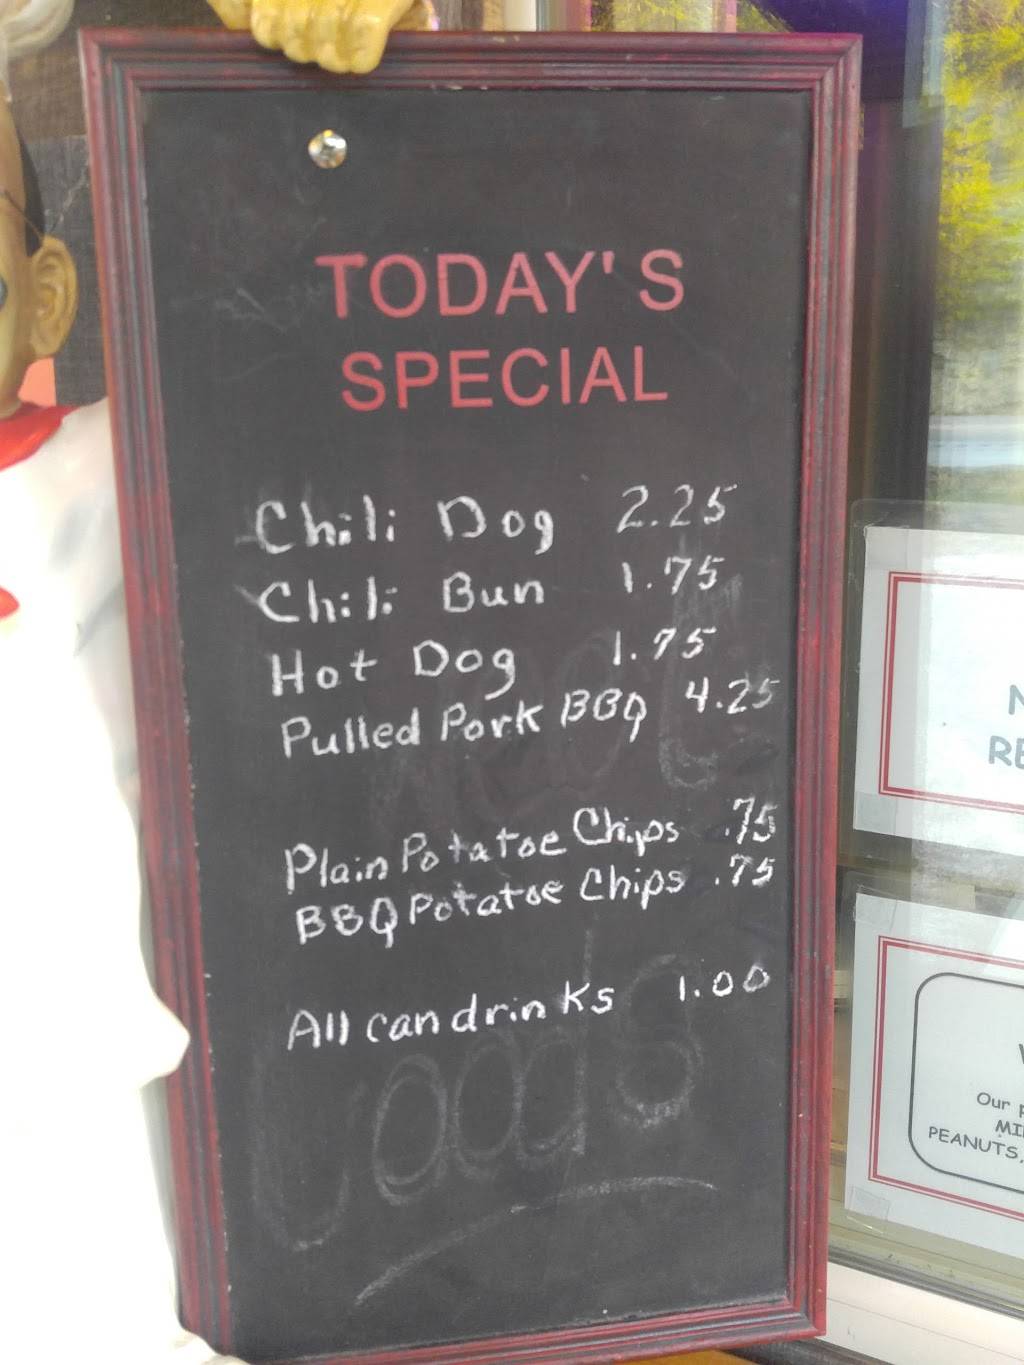 TODAY'S
SPECIAL
Chili Dog 2.25
Chili Bun 1.75
Hot Dog 1.75
Pulled Pork BBQ 4.25
Plain Potatoe Chips .75
BBQ Potatoe Chips .75
All can drinks 1.00
RE
Our
MI
PEANUTS,